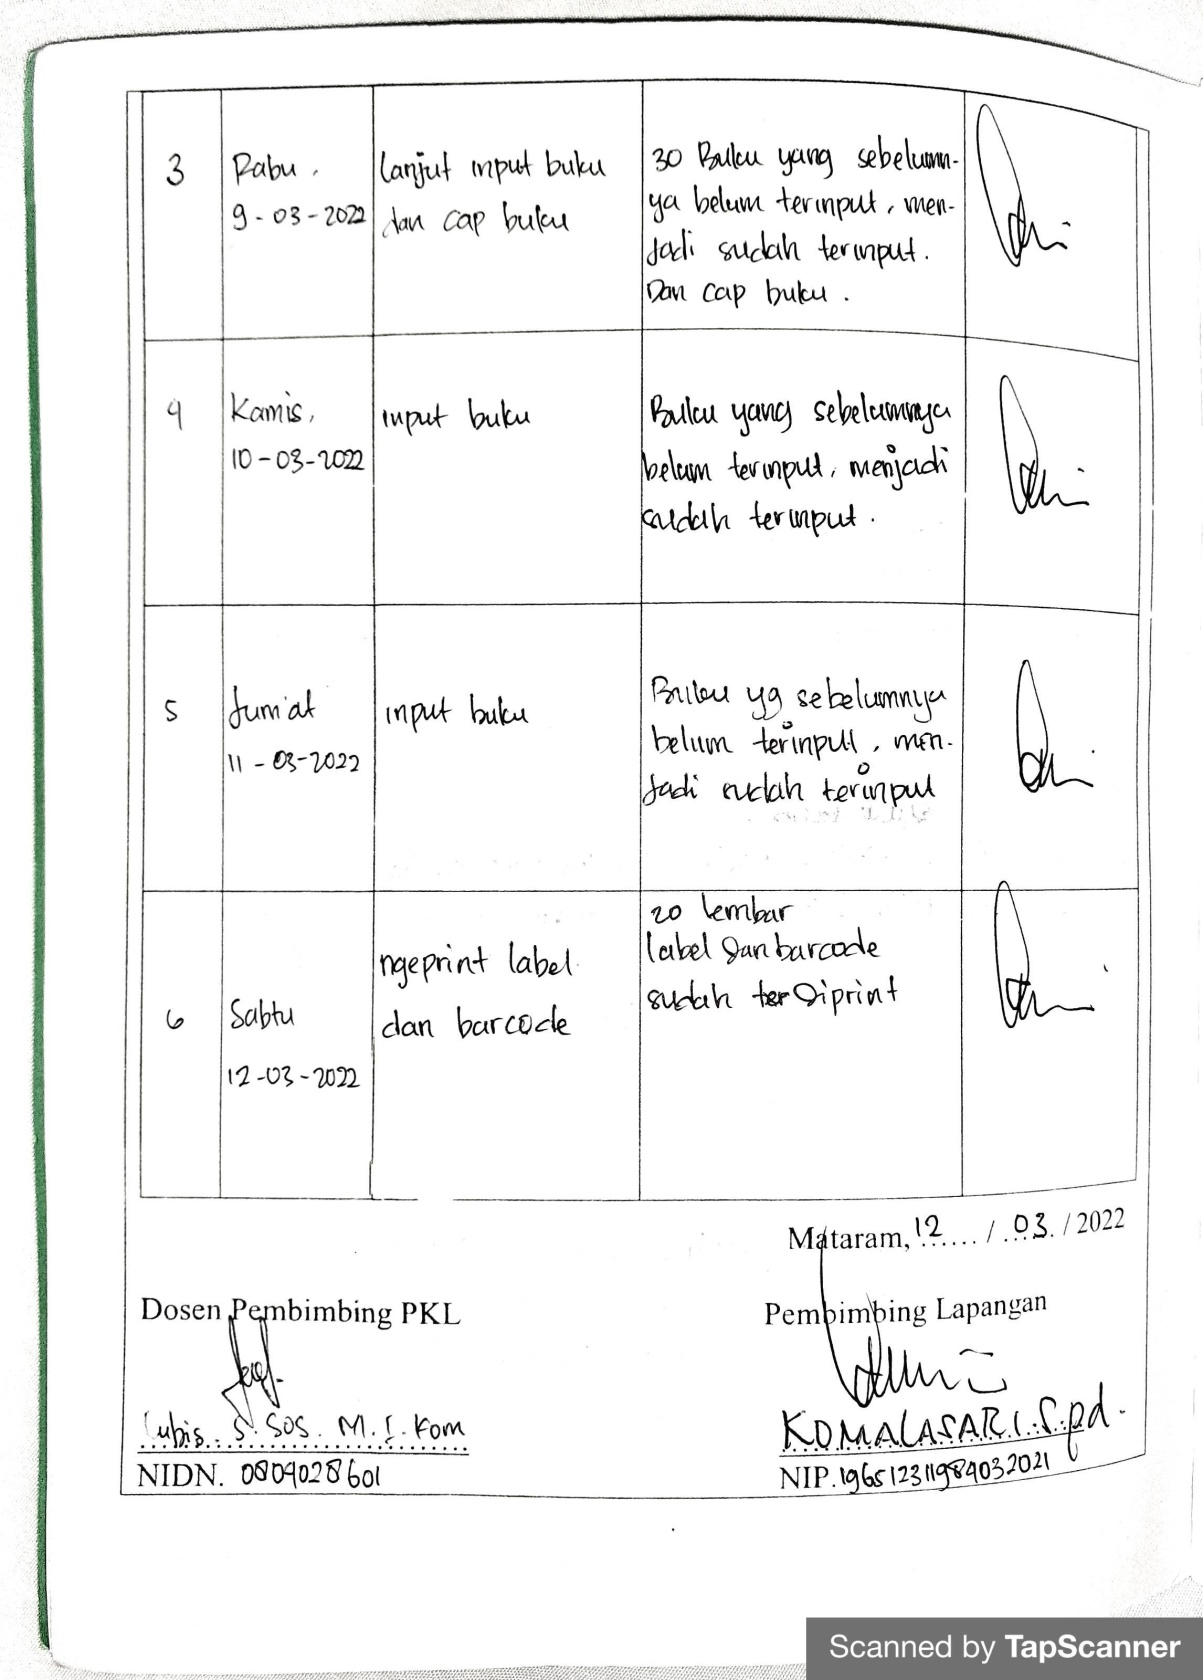 3
Rabu,
9-03-2022
lanjut input buku
dan cap buku
30 Buku yang sebelumn-
ya belum terinput, men-
Jadi sudah terinput.
Dan cap buku.
4
Kamis,
10-03-2022
input buku
Buku yang sebelumnya
belum terinput, menjadi
sudah terinput.
5
Jum'at
11-03-2022
input buku
Buku yg sebelumnya
belum terinput, men-
Jadi sudah terinput
6
Sabtu
12-03-2022
ngeprint label
dan barcode
20 lembar
label dan barcode
sudah ter diprint
Mataram, 12 / 03 / 2022
Dosen Pembimbing PKL
Pembimbing Lapangan
Lubis. S. Sos. M.I.Kom
KOMALASARI.S.pd.
NIDN. 0809028601
NIP. 196512311984032021
Scanned by TapScanner